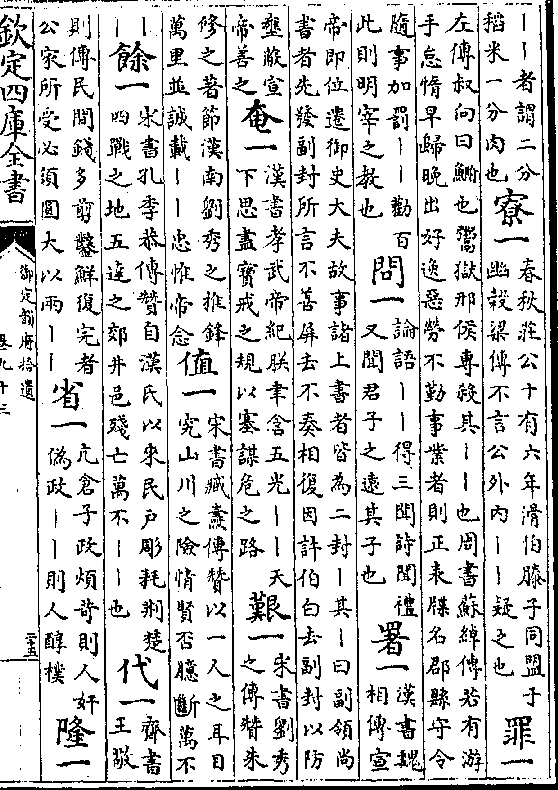 丨丨者謂二分
稻米一分肉也
寮一
春秋莊公十有六年滑伯滕子同盟于
幽穀梁傳不言公外内丨丨疑之也
罪一
左傳叔向曰鮒也鬻獄邢侯專殺其丨丨也周書蘇綽傳若有游
手怠惰早歸晚出好逸惡勞不勤事業者則正表牒名郡縣守令
隨事加罰丨丨勸百
此則明宰之教也
問一
論語丨丨得三聞詩聞禮
又聞君子之遠其子也
署一
漢書魏
相傳宣
帝即位遣御史大夫故事諸上書者皆為二封丨其丨曰副領尚
書者先發副封所言不善屏去不奏相復因許伯白去副封以防
壅蔽宣
帝善之
奄一
漢書孝武帝紀朕幸含五光丨丨天
下思盡寶戒之規以塞謀危之路
艱一
宋書劉秀
之傳贊朱
修之著節漢南劉秀之推鋒
萬里並誠載丨丨忠惟帝念
值一
宋書臧燾傳贊以一人之耳目
究山川之險情賢否臆斷萬不
丨
餘一
宋書孔季恭傳贊自漢氏以來民户彫耗荆楚
四戰之地五達之郊井邑殘亡萬不丨丨也
代一
齊書
王敬
則傳民間錢多剪鑿鮮復完者
公家所受必須圓大以兩丨丨
省一
亢倉子政煩苛則人奸
偽政丨丨則人醇樸
隆一
欽定四庫全書
御定韻府拾遺
卷九十三